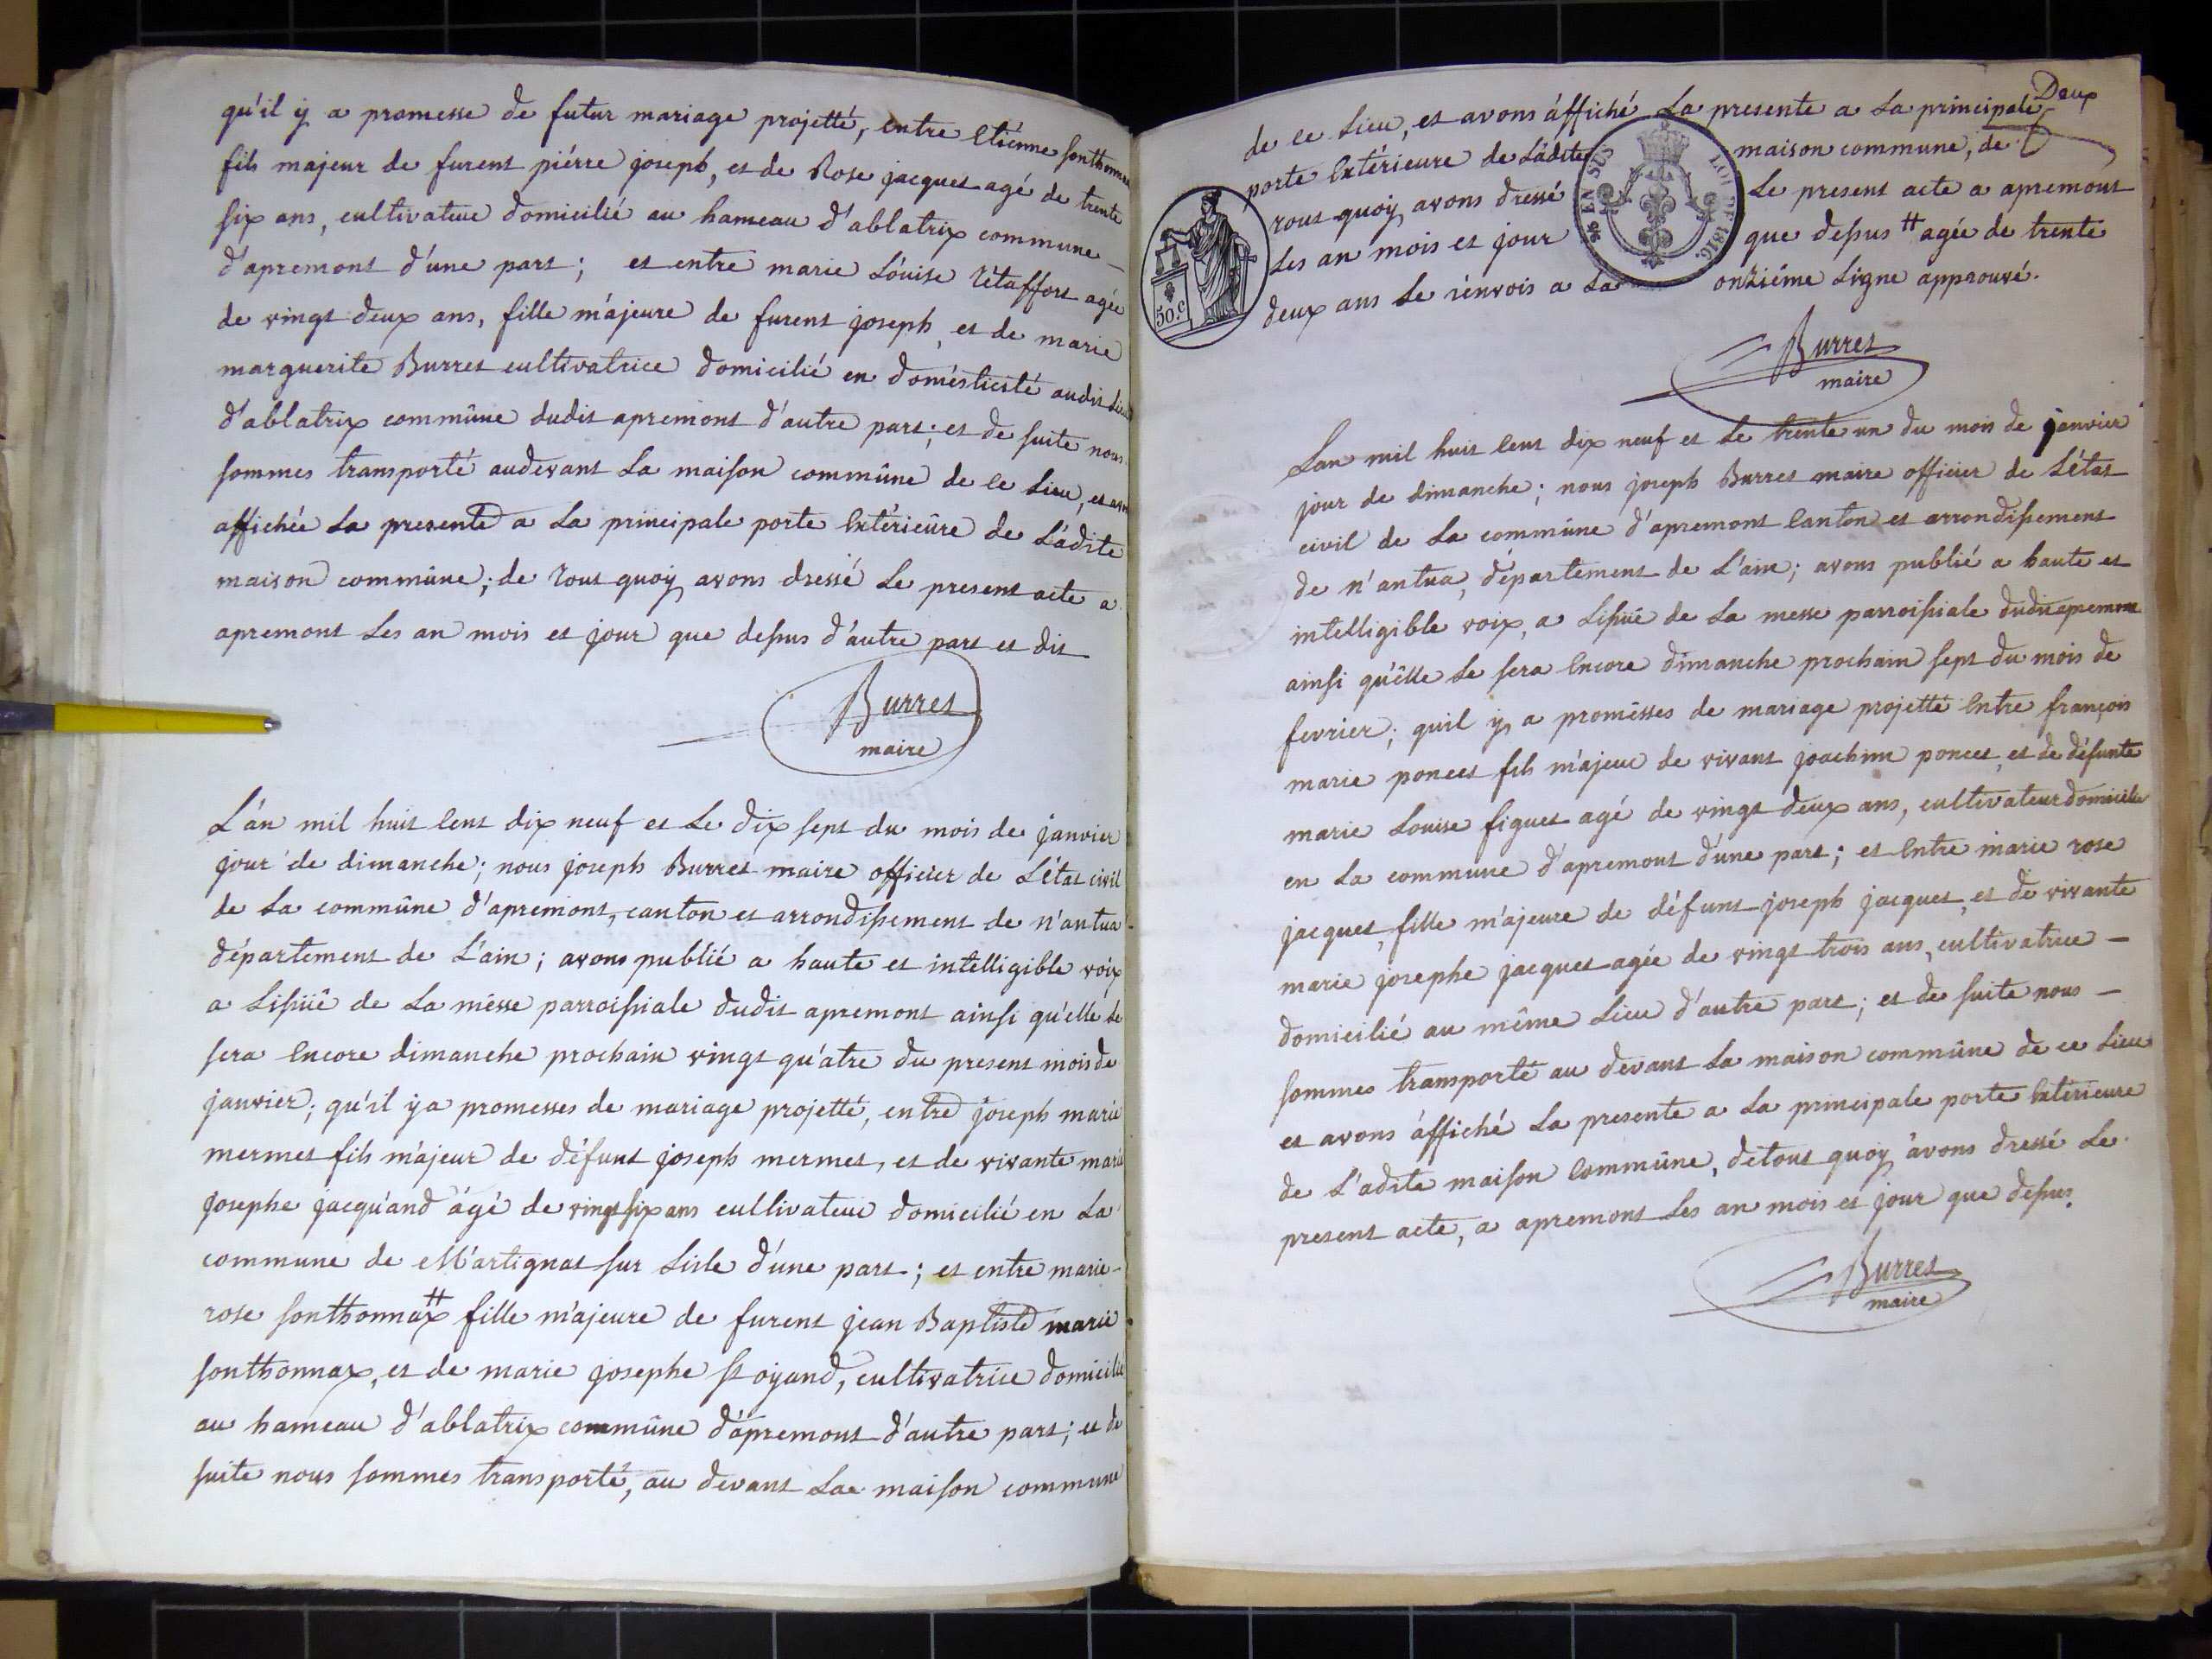 qu'il ÿ a promesse de futur mariage projetté, entre Etienne sonthonnax
fils majeur de furent piérre joseph, et de Rose jacquet agé de trente
six ans, cultivateur domicilié au hameau d'ablatrix commune
d'apremont d'une part; et entre marie Loúise Rétaffort agée
de vingt deux ans, fille májeure de furent joseph, et de marie
marguerite Burret cultivatrice domicilié en doméstisité audit Lieu
d'ablatrix commûne dudit apremont d'autre part; et de suite nous
sommes transporté audevant La maison commûne de ce Lieu, et avons
affichée La presente a La principale porte Extérieûre de Ládite
maison commûne; de tout quoÿ avons dressé Le present acte a
apremont Les an mois et jour que dessus d'autre part et dit
Burret
maire
L'án mil huit Cent dix neuf et Le dix sept du mois de janvier
jour de dimanche; nous joseph Burret maire officier de L'état civil
de La commûne d'apremont, canton et arrondissement de n'antua
département de L'ain; avons publié a haute et intelligible voix
a Lissüe de La mésse parroissiale dudit apremont ainsi qu'elle Le
sera Encore dimanche prochain vingt qu'atre du present mois de
janvier; qu'il ÿ a promesses de mariage projetté, entre joseph marie
mermet fils májeur de défunt joseph mermet, et de vivante marie
josephe jacquánd ágé de vingt six ans cultivateur domicilié en La
commune de M'artignat sur Lisle d'une part; et entre marie
rose sonthonnax # fille májeure de furent jean Baptiste marie
sonthonnax, et de marie josephe st oÿand, cultivatrice domicilié
au hameau d'ablatrix commûne d'ápremont d'autre part; et de
suite nous sommes transporté, au devant La maison commune
Deux
de ce Lieu, et avons áffiché La presente a La principale
porte Extérieure de Ládite maison commune, de
tout quoÿ avons dressé Le present acte a apremont
Les an mois et jour que dessus # agée de trente
deux ans Le rénvois a La onziéme Ligne approuvé.
EN SUS
LOI DE 1816.
50.c
Burret
maire
Lan mil huit Cent dix neuf et Le trente un du mois de janvier
jour de dimanche; nous joseph Burret maire officier de L'état
civil de La commûne d'apremont Canton et arrondissement
de n'antua, département de L'ain; avons publié a haute et
intelligible voix, a Lissüe de La messe parroissiale dudit apremont
ainsi qu'élle Le sera Encore dimanche prochain sept du mois de
fevrier; quil ÿ a promésses de mariage projetté Entre françois
marie poncet fils májeur de vivant joachim poncet, et de défunte
marie Louise figuet agé de vingt deux ans, cultivateur domicilié
en La commune d'apremont d'une part; et Entre marie rose
jacquet, fille májeure de défunt joseph jacquet, et de vivante
marie josephe jacquet agée de vingt trois ans, cultivatrice
domicilié au même Lieu d'autre part; et de suite nous
sommes transporté au devant La maison commûne de ce Lieu
et avons áffiché La presente a La principale porte Extérieure
de L'adite maison Commûne, de tout quoÿ ávons dressé Le
present acte, a apremont Les an mois et jour que dessus.
Burret
maire